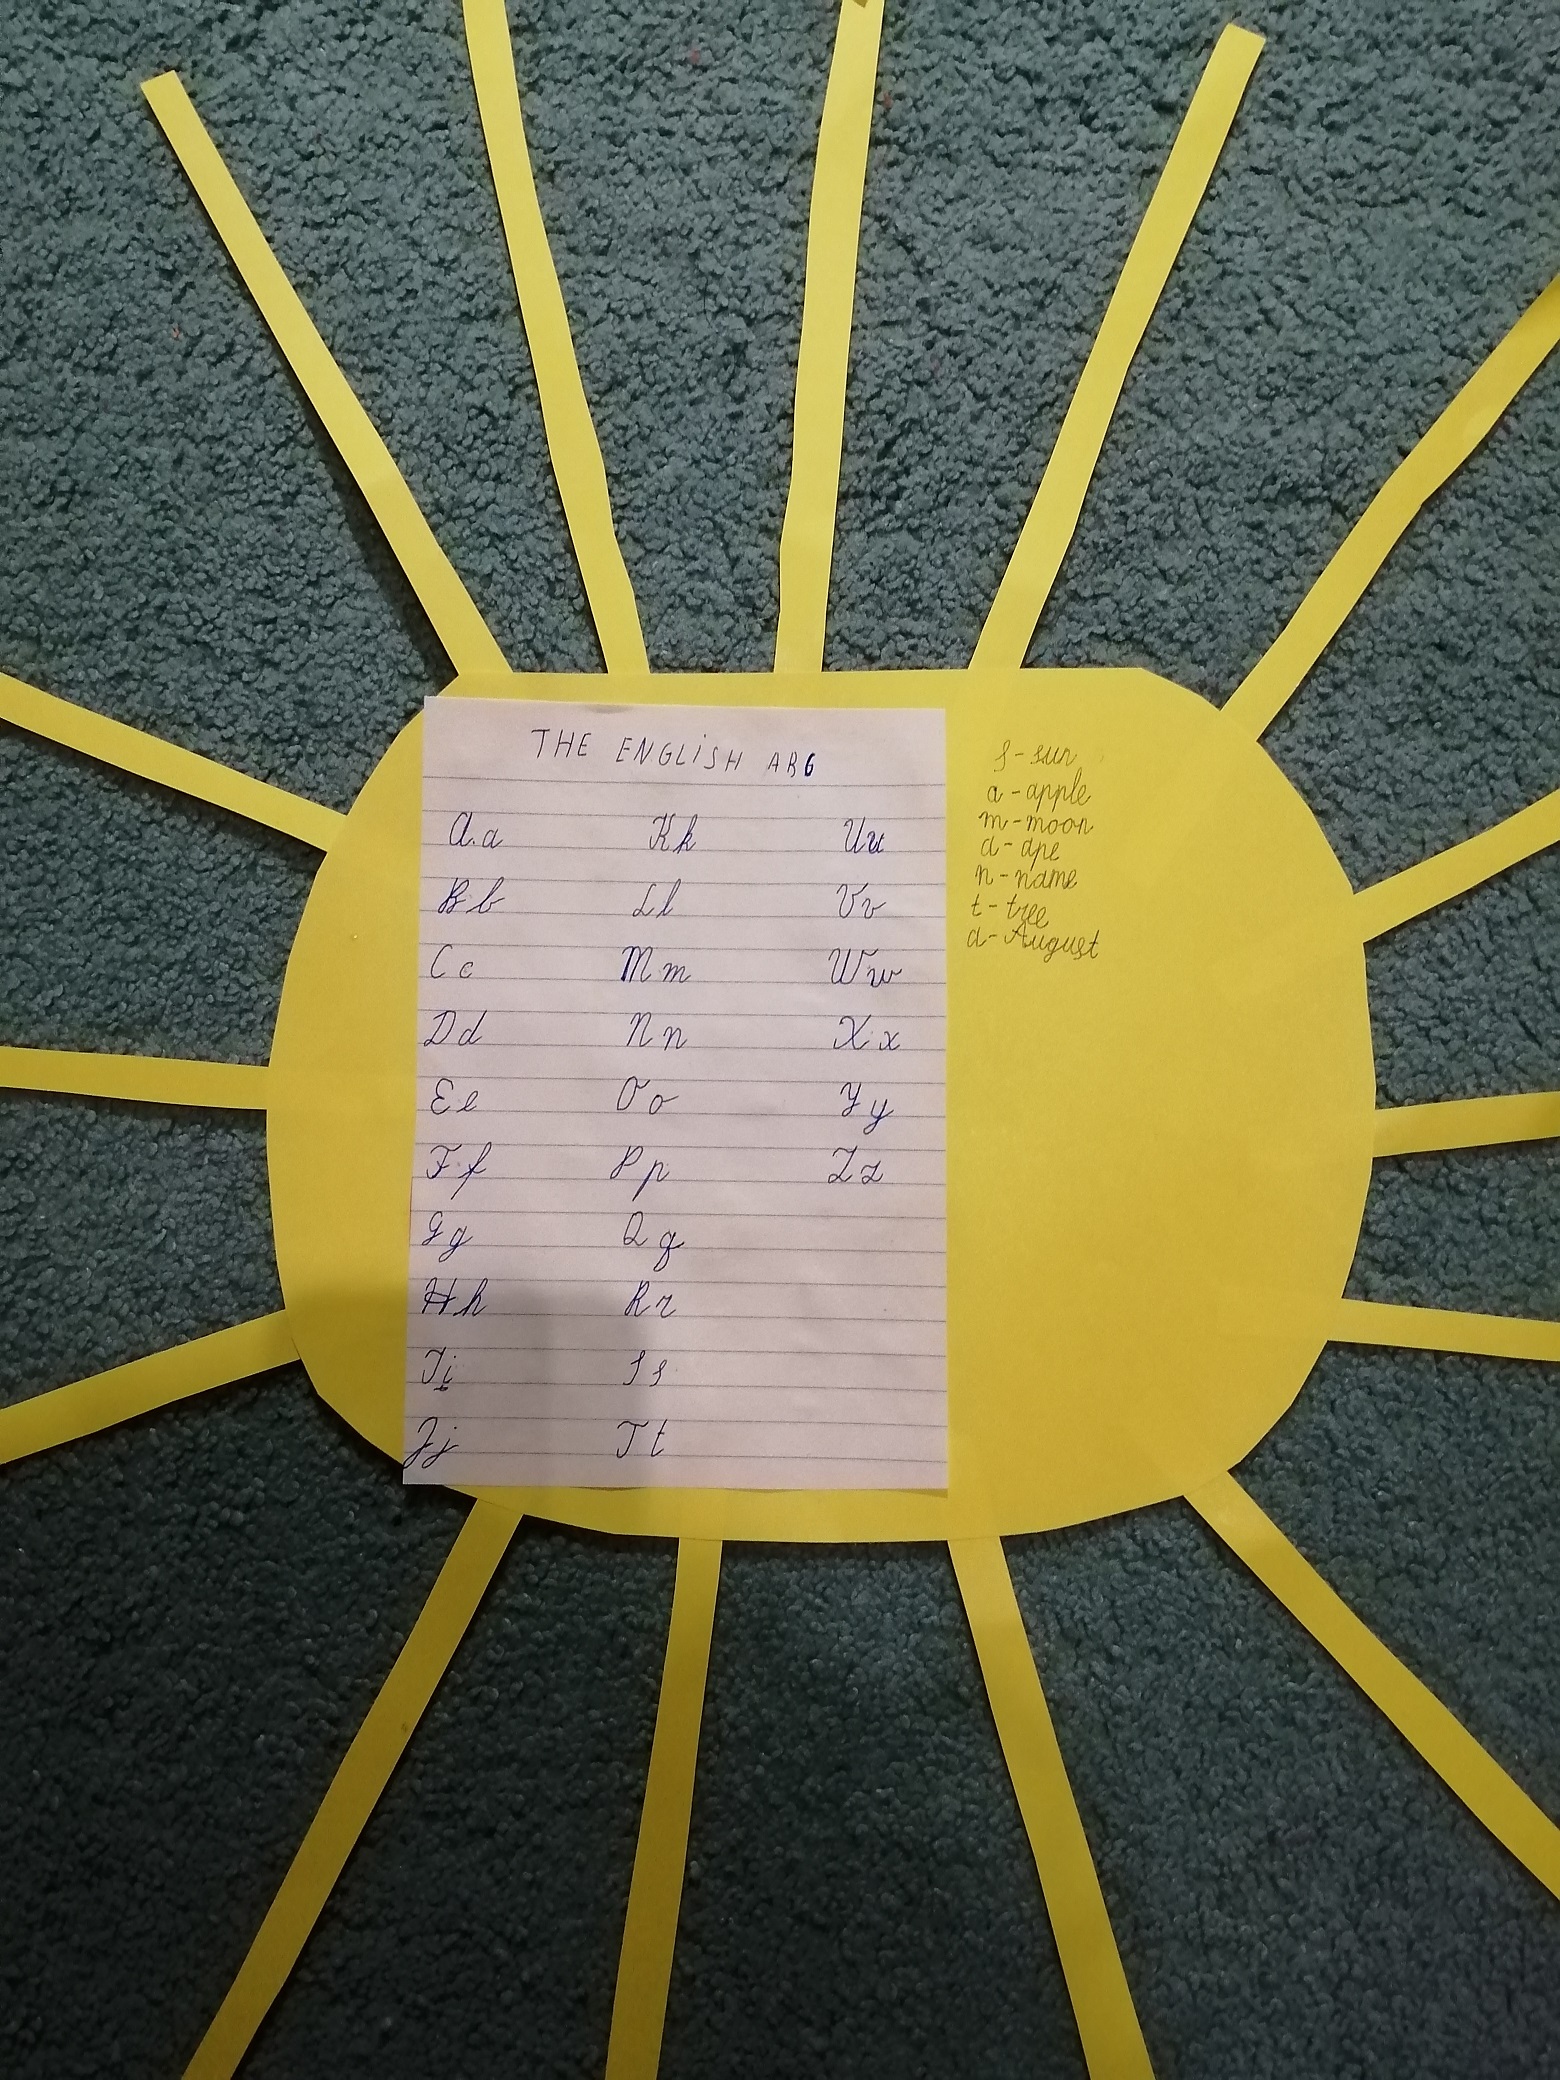 THE ENGLISH ABG
Aa Kk Uu
Bb Ll Vv
Cc Mm Ww
Dd Nn Xx
Ee Oo Yy
Ff Pp Zz
Gg Qq
Hh Rr
Ii Ss
Jj Tt
s - sun
a - apple
m - moon
a - ape
n - name
t - tree
a - August